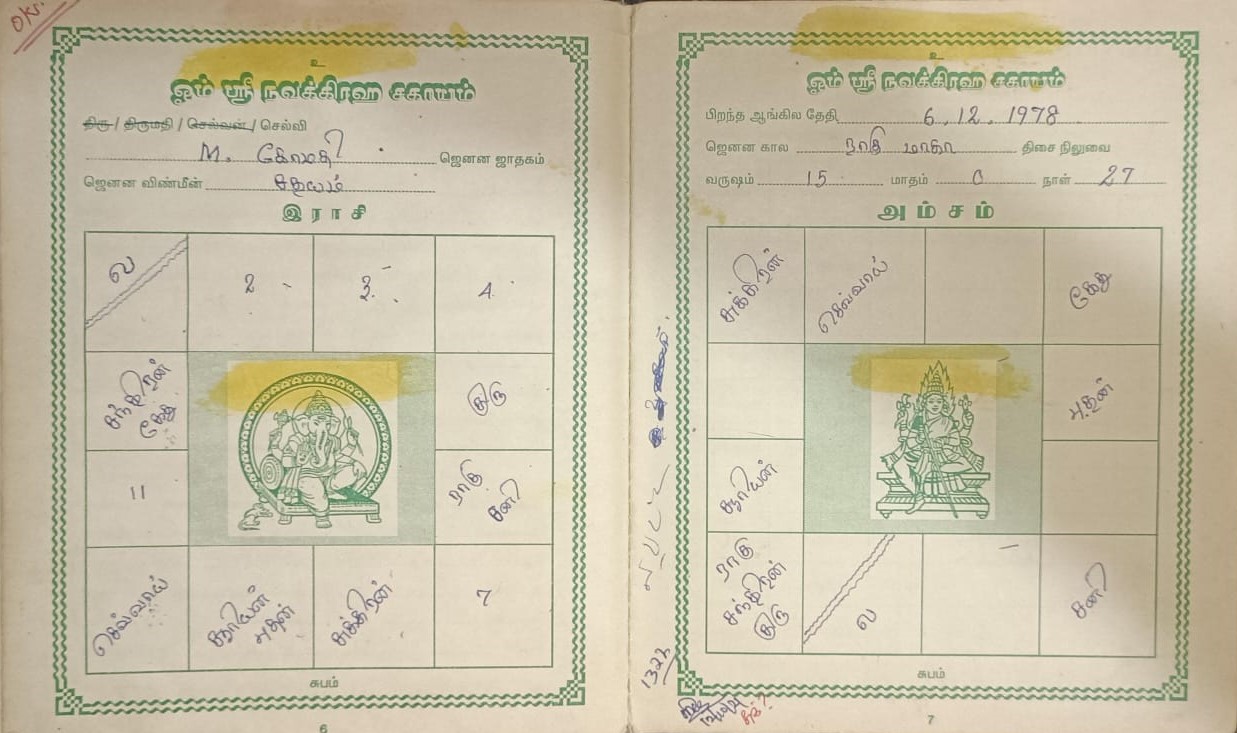 ok.
உ
ஓம் ஸ்ரீ நவக்கிரஹ சகாயம்
திரு / திருமதி / செல்வன் / செல்வி
M. கோமதி ஜெனன ஜாதகம்
ஜெனன விண்மீன் சதயம்
இராசி
ல 2 3 4
சந்திரன் கேது குரு
11 ராகு சனி
செவ்வாய் சூரியன் புதன் சுக்கிரன் 7
சுபம்
6
உ
ஓம் ஸ்ரீ நவக்கிரஹ சகாயம்
பிறந்த ஆங்கில தேதி 6.12.1978
ஜெனன கால ராகு மாகா திசை நிலுவை
வருஷம் 15 மாதம் 0 நாள் 27
அம்சம்
சுக்கிரன் செவ்வாய் கேது
புதன்
சூரியன்
ராகு சந்திரன் குரு ல சனி
சுபம்
7